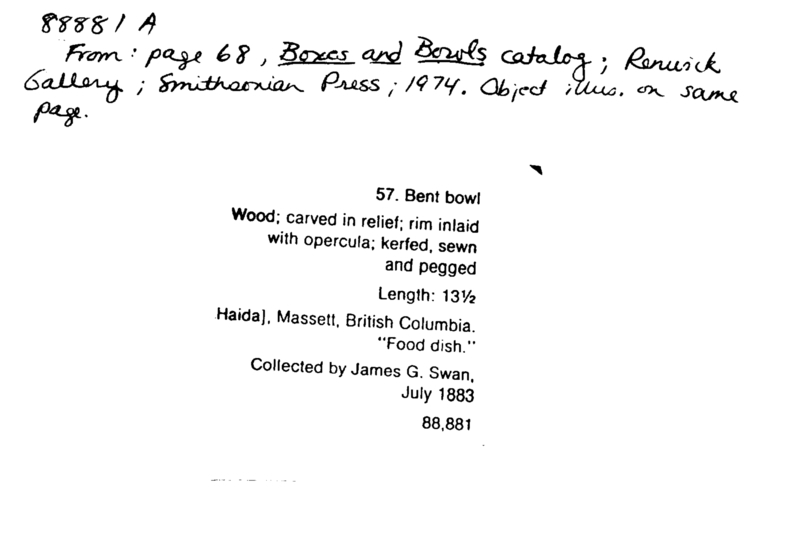 88881 A
From: page 68, Boxes and Bowls catalog; Renwick
Gallery; Smithsonian Press; 1974. Object illus. on same
page.
57. Bent bowl
Wood; carved in relief; rim inlaid
with opercula; kerfed, sewn
and pegged
Length: 13½
Haida], Massett, British Columbia.
"Food dish."
Collected by James G. Swan,
July 1883
88,881